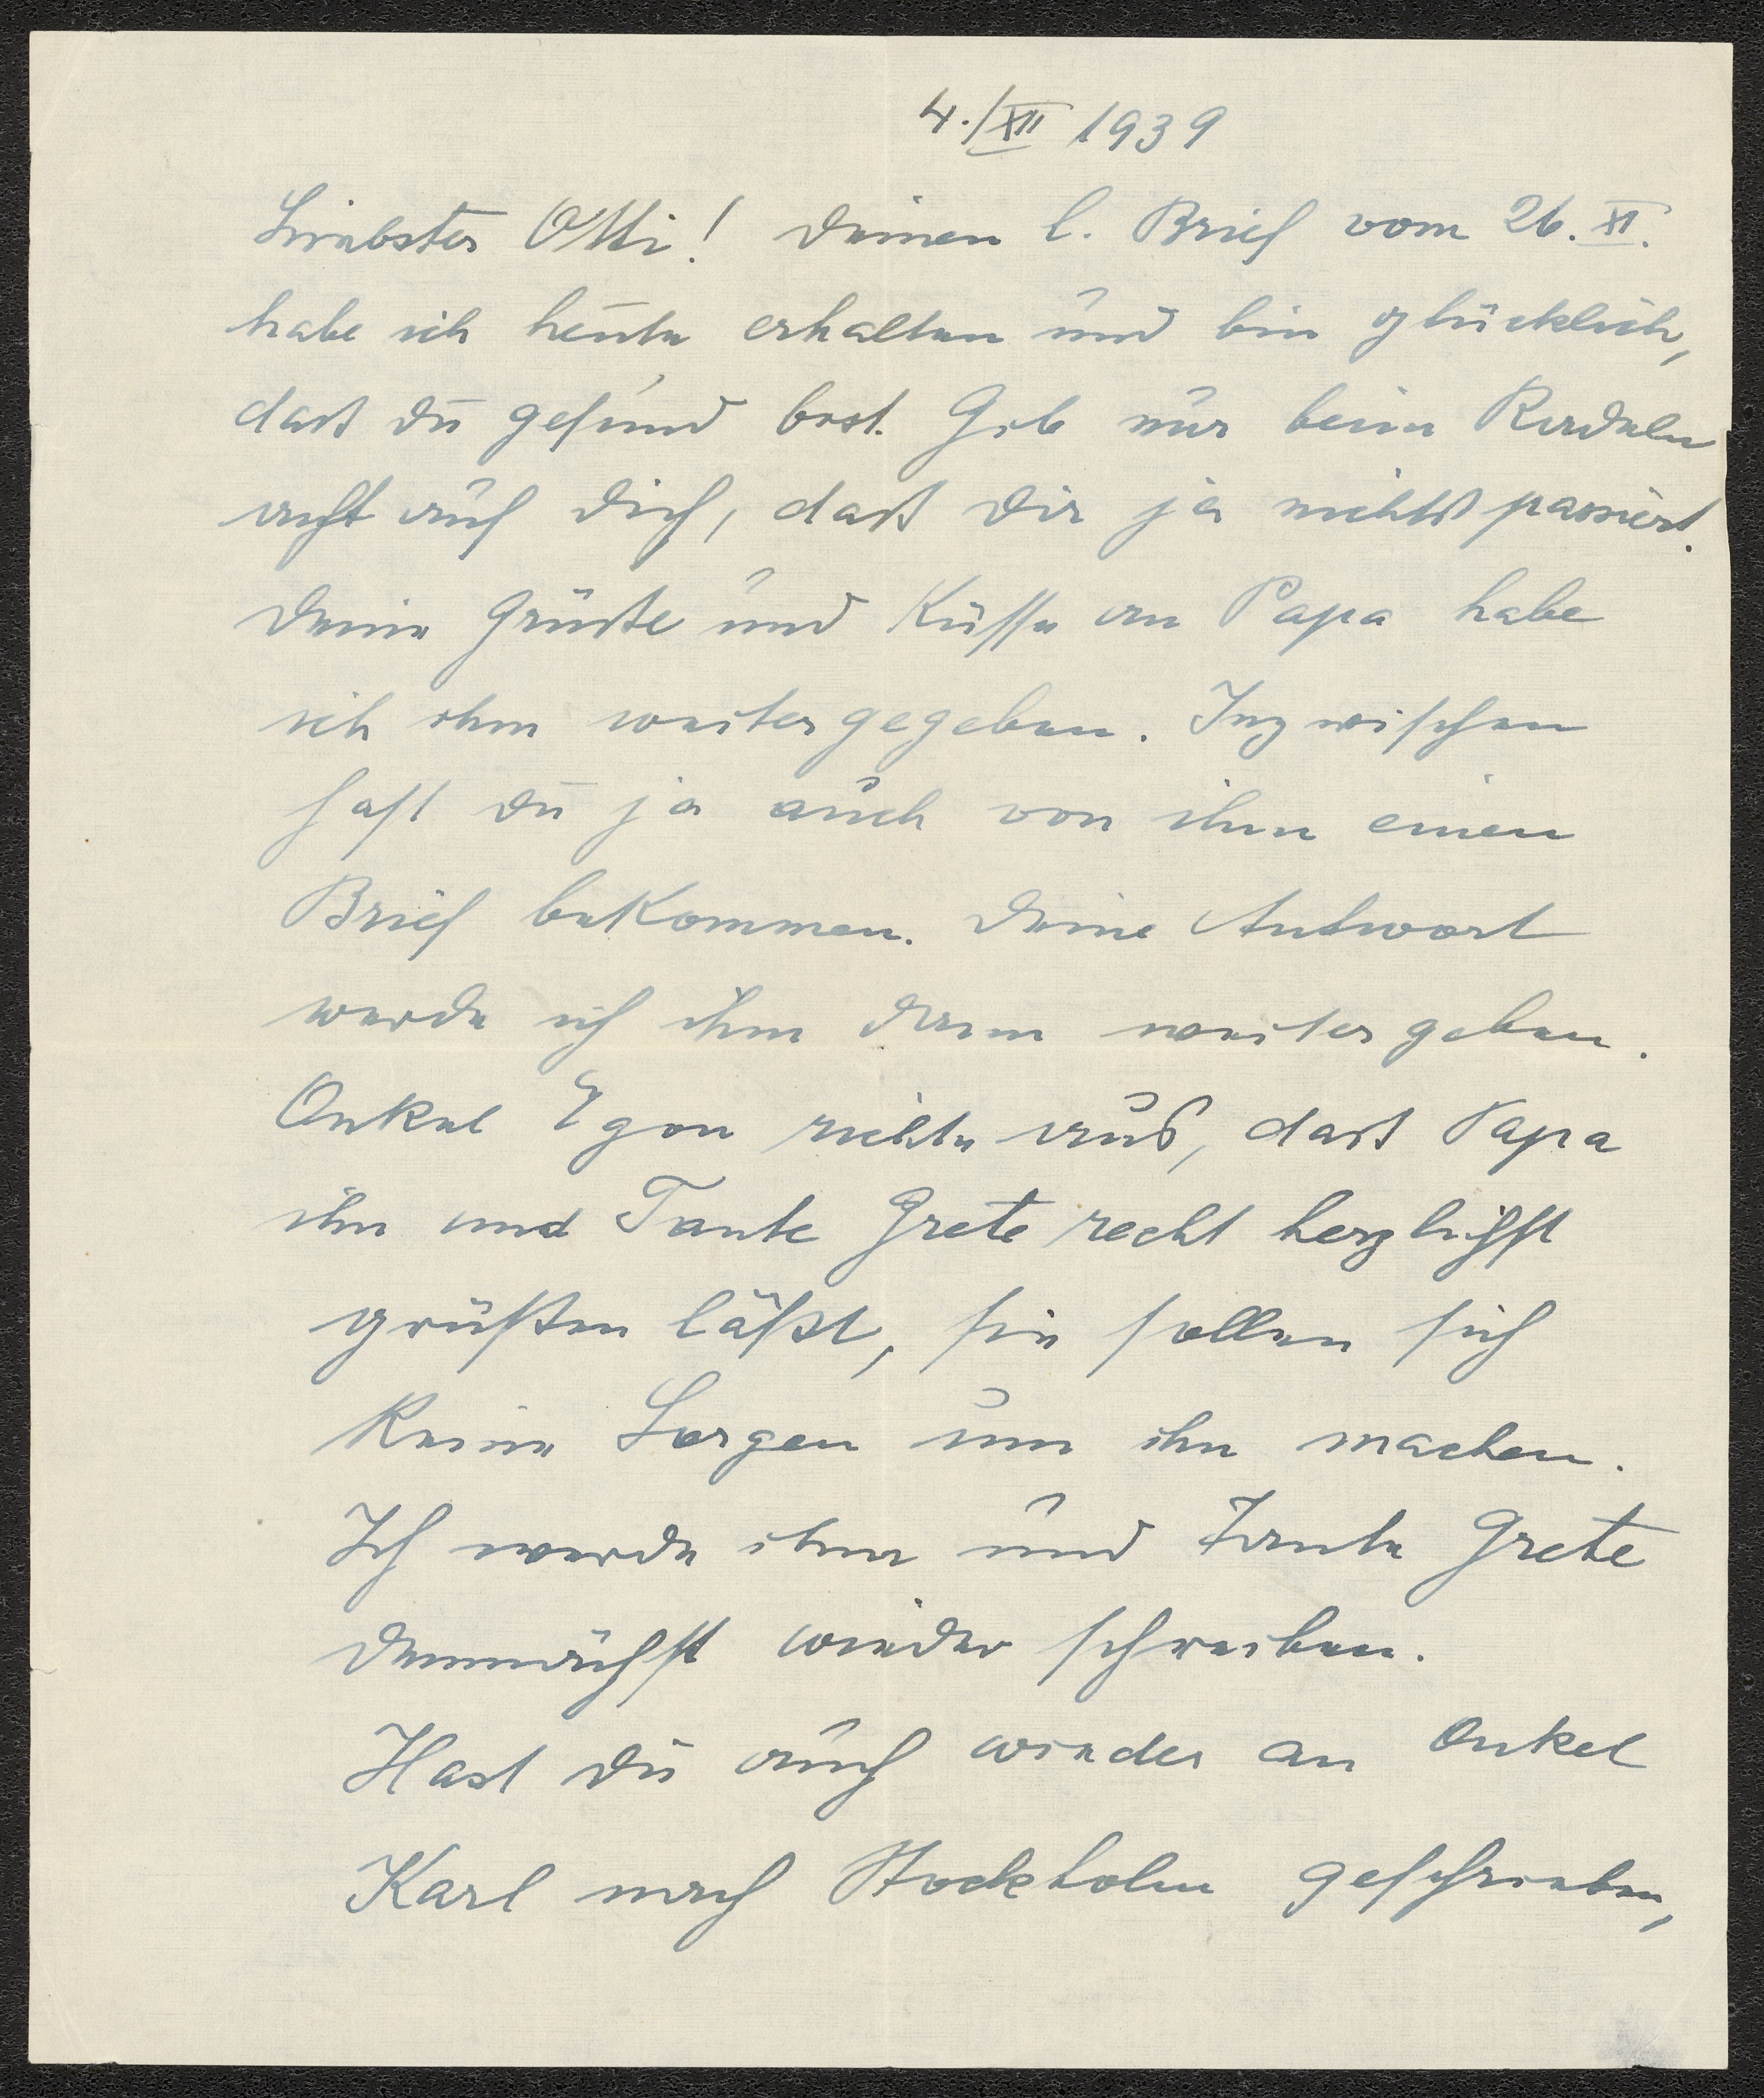 4./XII 1939
Liebster Otti! Deinen l. Brief vom 26. XI.
habe ich heute erhalten und bin glücklich,
daß du gesund bist. Gib nur beim Radeln
acht auf dich, daß dir ja nichts passiert.
Deine Grüße und Küsse an Papa habe
ich ihm weitergegeben. Inzwischen
hast du ja auch von ihm einen
Brief bekommen. Deine Antwort
werde ich ihm dann weitergeben.
Onkel Egon richte aus, daß Papa
ihn und Tante Grete recht herzlichst
grüßen läßt, sie sollen sich
keine Sorgen um ihn machen.
Ich werde ihm und Tante Grete
demnächst wieder schreiben.
Hast du auch wieder an Onkel
Karl nach Stockholm geschrieben,